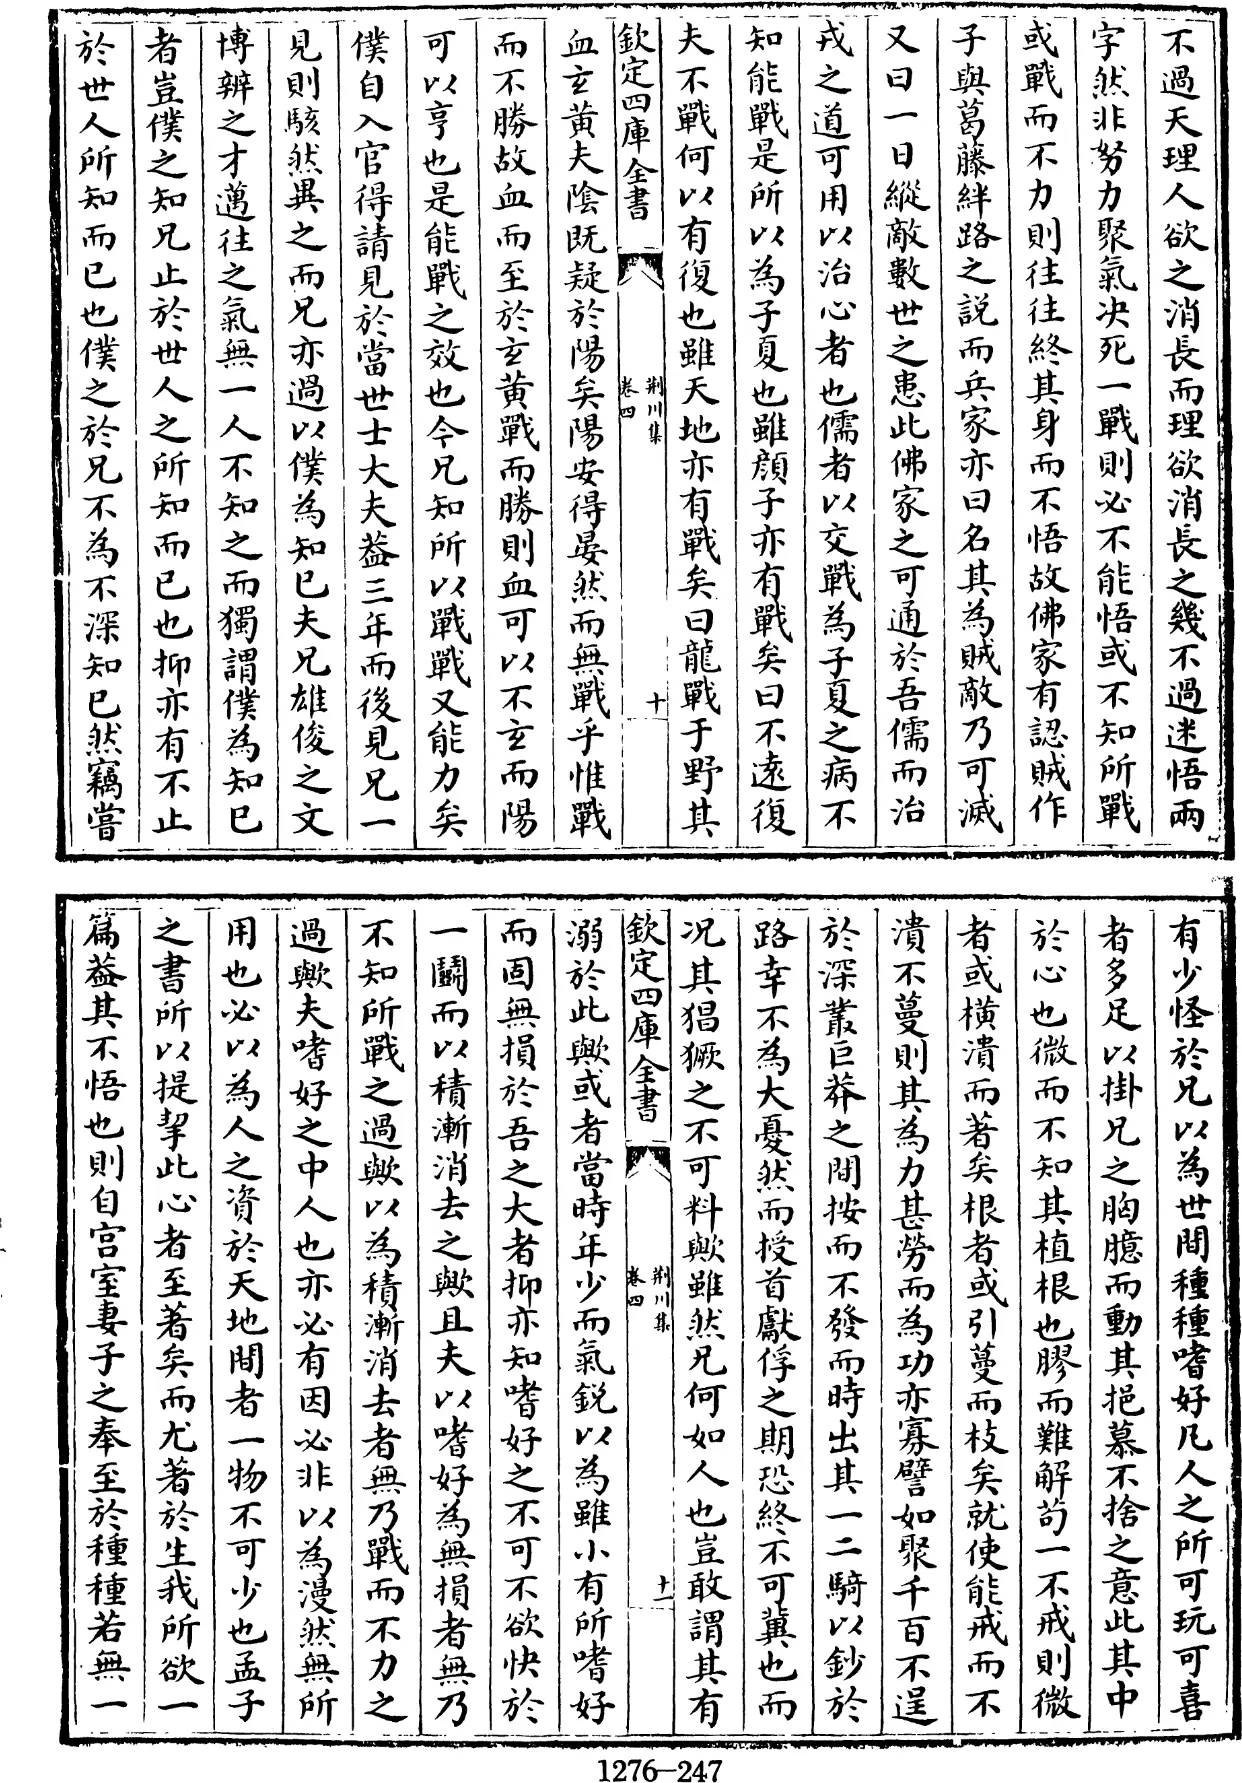 不過天理人欲之消長而理欲消長之幾不過迷悟兩
字然非努力聚氣决死一戰則必不能悟或不知所戰
或戰而不力則往往終其身而不悟故佛家有認賊作
子與葛藤絆路之説而兵家亦曰名其為賊敵乃可滅
又曰一日縱敵數世之患此佛家之可通於吾儒而治
戎之道可用以治心者也儒者以交戰為子夏之病不
知能戰是所以為子夏也雖顔子亦有戰矣曰不遠復
夫不戰何以有復也雖天地亦有戰矣曰龍戰于野其
欽定四庫全書
荆川集
卷四
十
血玄黄夫陰既疑於陽矣陽安得晏然而無戰乎惟戰
而不勝故血而至於玄黄戰而勝則血可以不玄而陽
可以亨也是能戰之效也今兄知所以戰戰又能力矣
僕自入官得請見於當世士大夫葢三年而後見兄一
見則駭然異之而兄亦過以僕為知已夫兄雄俊之文
博辨之才邁往之氣無一人不知之而獨謂僕為知已
者豈僕之知兄止於世人之所知而已也抑亦有不止
於世人所知而已也僕之於兄不為不深知已然竊嘗
有少怪於兄以為世間種種嗜好凡人之所可玩可喜
者多足以掛兄之胸臆而動其挹慕不捨之意此其中
於心也微而不知其植根也膠而難解茍一不戒則微
者或橫潰而著矣根者或引蔓而枝矣就使能戒而不
潰不蔓則其為力甚勞而為功亦寡譬如聚千百不逞
於深叢巨莽之間按而不發而時出其一二騎以鈔於
路幸不為大憂然而授首獻俘之期恐終不可冀也而
况其猖獗之不可料歟雖然兄何如人也豈敢謂其有
欽定四庫全書
荆川集
卷四
十一
溺於此歟或者當時年少而氣鋭以為雖小有所嗜好
而固無損於吾之大者抑亦知嗜好之不可不欲快於
一鬭而以積漸消去之歟且夫以嗜好為無損者無乃
不知所戰之過歟以為積漸消去者無乃戰而不力之
過歟夫嗜好之中人也亦必有因必非以為漫然無所
用也必以為人之資於天地間者一物不可少也孟子
之書所以提挈此心者至著矣而尤著於生我所欲一
篇葢其不悟也則自宫室妻子之奉至於種種若無一
1276-247